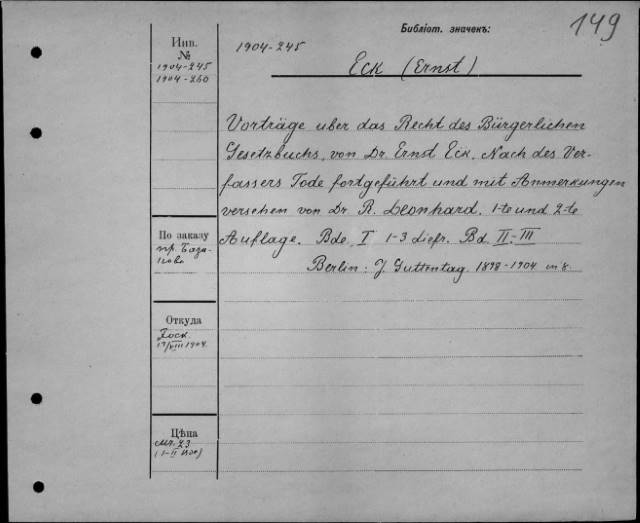 Библіот. значекъ:
149
Инв.
№
1904-245
1904-260
1904-245
Eck (Ernst)
Vorträge uber das Recht des Bürgerlichen
Gesetzbuchs, von Dr. Ernst Eck. Nach des Ver-
fassers Tode fortgeführt und mit Anmerkungen
versehen von Dr. R. Leonhard. 1-te und 2-te
Auflage. Bde. I 1-3 Liefr. Bd. II-III
Berlin: J. Guttentag. 1898-1904 in 8.
По заказу
пр. База-
нова
Откуда
17/VIII 1904.
Цѣна